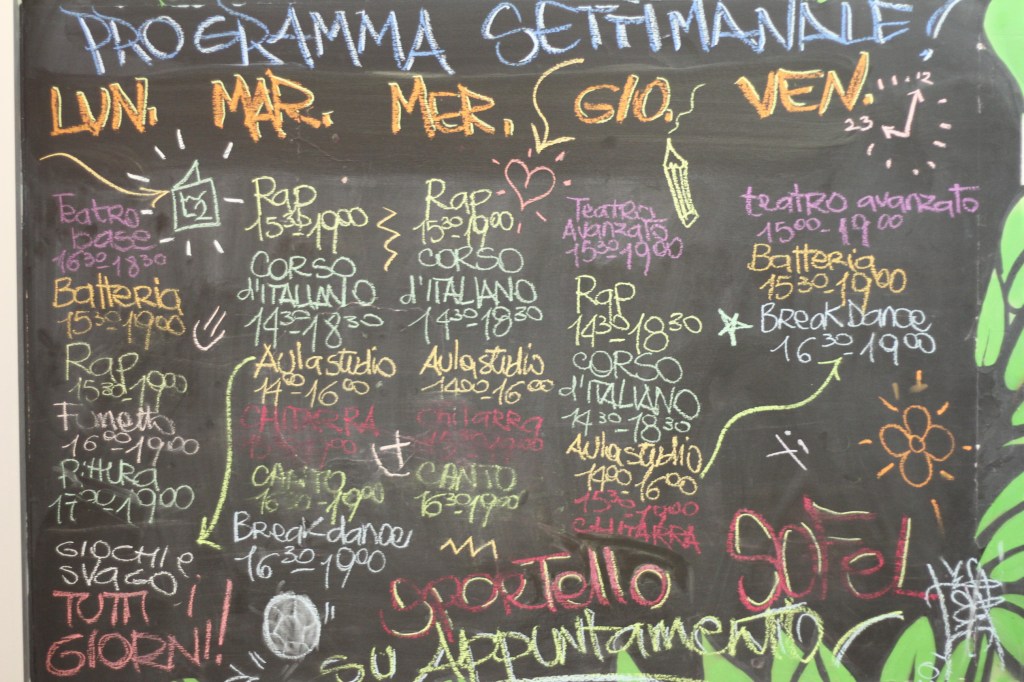 PROGRAMMA SETTIMANALE!
LUN. MAR. MER. GIO. VEN.
12
23
Teatro
base
16:30-18:30
Batteria
15:30-19:00
Rap
15:30-19:00
Fumetto
16:00-19:00
Pittura
17:00-19:00
GIOCHI e
SVAGO
TUTTI i
GIORNI!
Rap
15:30-19:00
CORSO
d'ITALIANO
14:30-18:30
Aula studio
14:00-16:00
CHITARRA
CANTO
16:30-19:00
Break-dance
16:30-19:00
Rap
15:30-19:00
CORSO
d'ITALIANO
14:30-18:30
Aula studio
14:00-16:00
Chitarra
15:30-19:00
CANTO
16:30-19:00
Teatro
Avanzato
15:30-19:00
Rap
14:30-18:30
CORSO
d'ITALIANO
14:30-18:30
Aula studio
14:00-16:00
15:30-19:00
CHITARRA
teatro avanzato
15:00-19:00
Batteria
15:30-19:00
Break Dance
16:30-19:00
SPORTello SOFeL
SU APPUNtAMeNtO